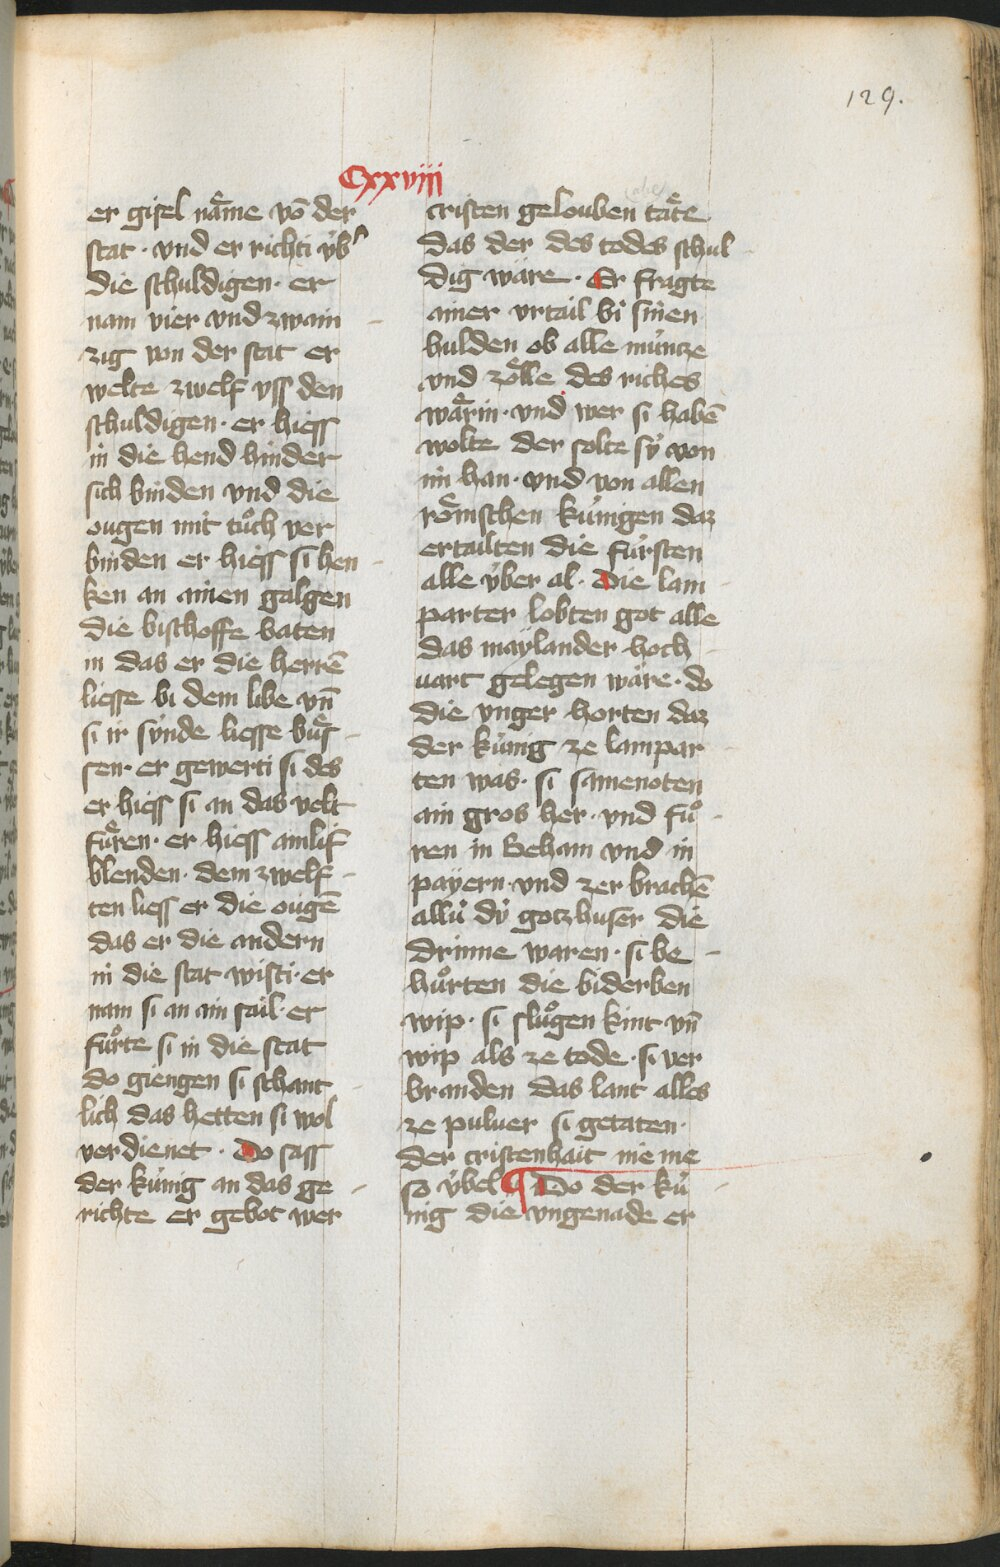 129.
Cxxviij
er gisel näme vō der
stat · vnd er richti v̈b᾿
die schuldigen · er
nam vier vnd zwain
zig von der stat er
welte zwelf vss den
schuldigen · er hiess
in die hend hinder
sich binden vnd die
ougen mit tůch ver
binden er hiess si hen
ken an ainen galgen
die bischoffe baten
in das er die herrē
liesse bi dem libe vn̄
si ir sv̈nde liesse bůs
sen · er gewerti si des
er hiess si an das velt
fůren · er hiess ainlif
blenden · dem zwelf
ten liess er die ougē
das er die andern
in die stat wisti · er
nam si an ain sail · er
fůrte si in die stat
do giengen si schant
lich das hetten si wol
verdienet · Do sass
der kúnig an das ge
richte er gebot wer
cristen gelouben täte
das der des todes schul
dig wäre · Er fragte
ainer vrtail bi sinen
hulden ob alle múntze
vnd zölle des riches
wärin · vnd wer si habē
wolte der solte sÿ von
im han · vnd von allen
römschen kúnigen daz
ertailten die fúrsten
alle v́ber al · Die lam
parter lobten got alle
das maÿlander hoch
uart gelegen wäre · do
die vnger horten daz
der kúnig ze lampar
ten was · si samenoten
ain gros her · vnd fů
ren in Beham vnd in
paÿern · vnd zer brachē
allú dÿ gotzhuser die
drinne waren · si be
hůrten die biderben
wip · si slůgen kint vn̄
wip als ze tode · si ver
branden das lant alles
ze puluer si getaten ·
der cristenhait nie me
so v́bel ¶ Do der kú
nig die vngenade er